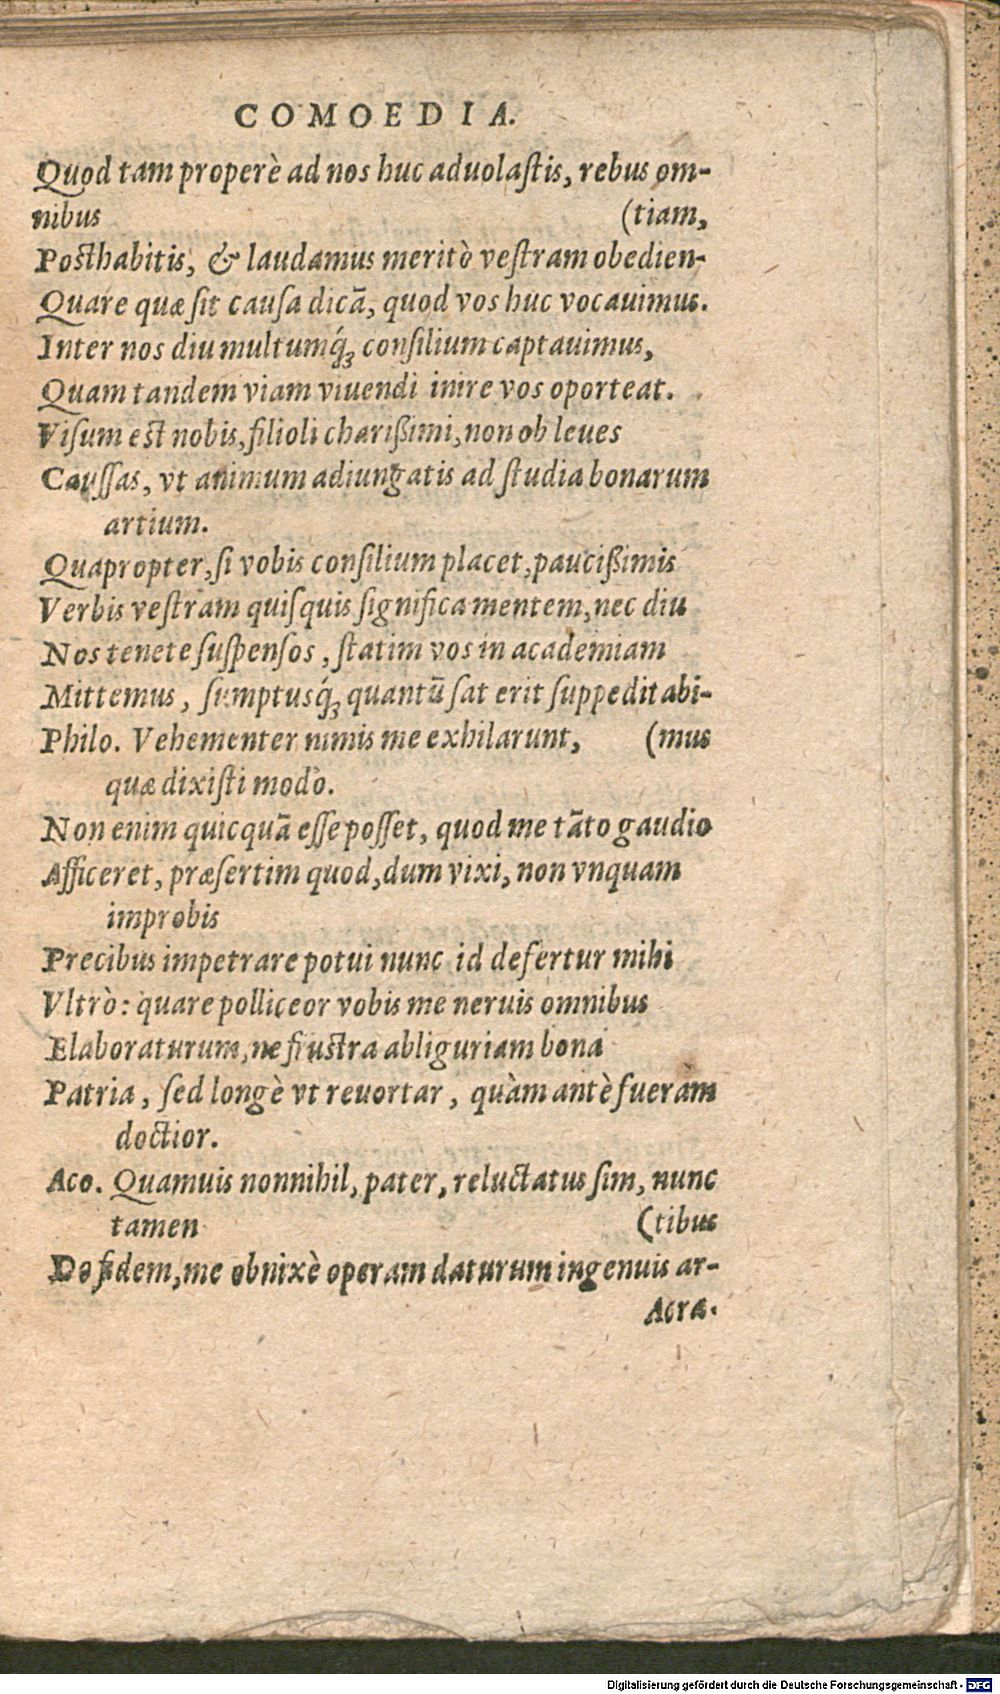 COMOEDIA.
Quod tam properè ad nos huc aduolaſtis, rebus om-
nibus (tiam,
Posthabitis, & laudamus meritò veſtram obedien-
Quare quæ ſit cauſa dicã, quod vos huc vocauimus.
Inter nos diu multumq́ꝫ conſilium captauimus,
Quam tandem viam viuendi inire vos oporteat.
Viſum est nobis, filioli charißimi, non ob leues
Cauſſas, vt animum adiungatis ad ſtudia bonarum
artium.
Quapropter, ſi vobis conſilium placet, paucißimis
Verbis veſtram quiſquis ſignifica mentem, nec diu
Nos tenete ſuſpenſos, ſtatim vos in academiam
Mittemus, ſumptusq́ꝫ quantũ ſat erit ſuppeditabi-
Philo. Vehementer nimis me exhilarunt, (mus
quæ dixiſti modò.
Non enim quicquã eſſe poſſet, quod me tãto gaudio
Afficeret, præſertim quod, dum vixi, non vnquam
improbis
Precibus impetrare potui nunc id defertur mihi
Vltrò: quare polliceor vobis me neruis omnibus
Elaboraturum, ne fruſtra abliguriam bona
Patria, ſed longè vt reuortar, quàm antè fueràm
doctior.
Aco. Quamuis nonnihil, pater, reluctatus ſim, nunc
tamen (tibus
Do fidem, me obnixè operam daturum ingenuis ar-
Acra.
Digitalisierung gefördert durch die Deutsche Forschungsgemeinschaft - DFG